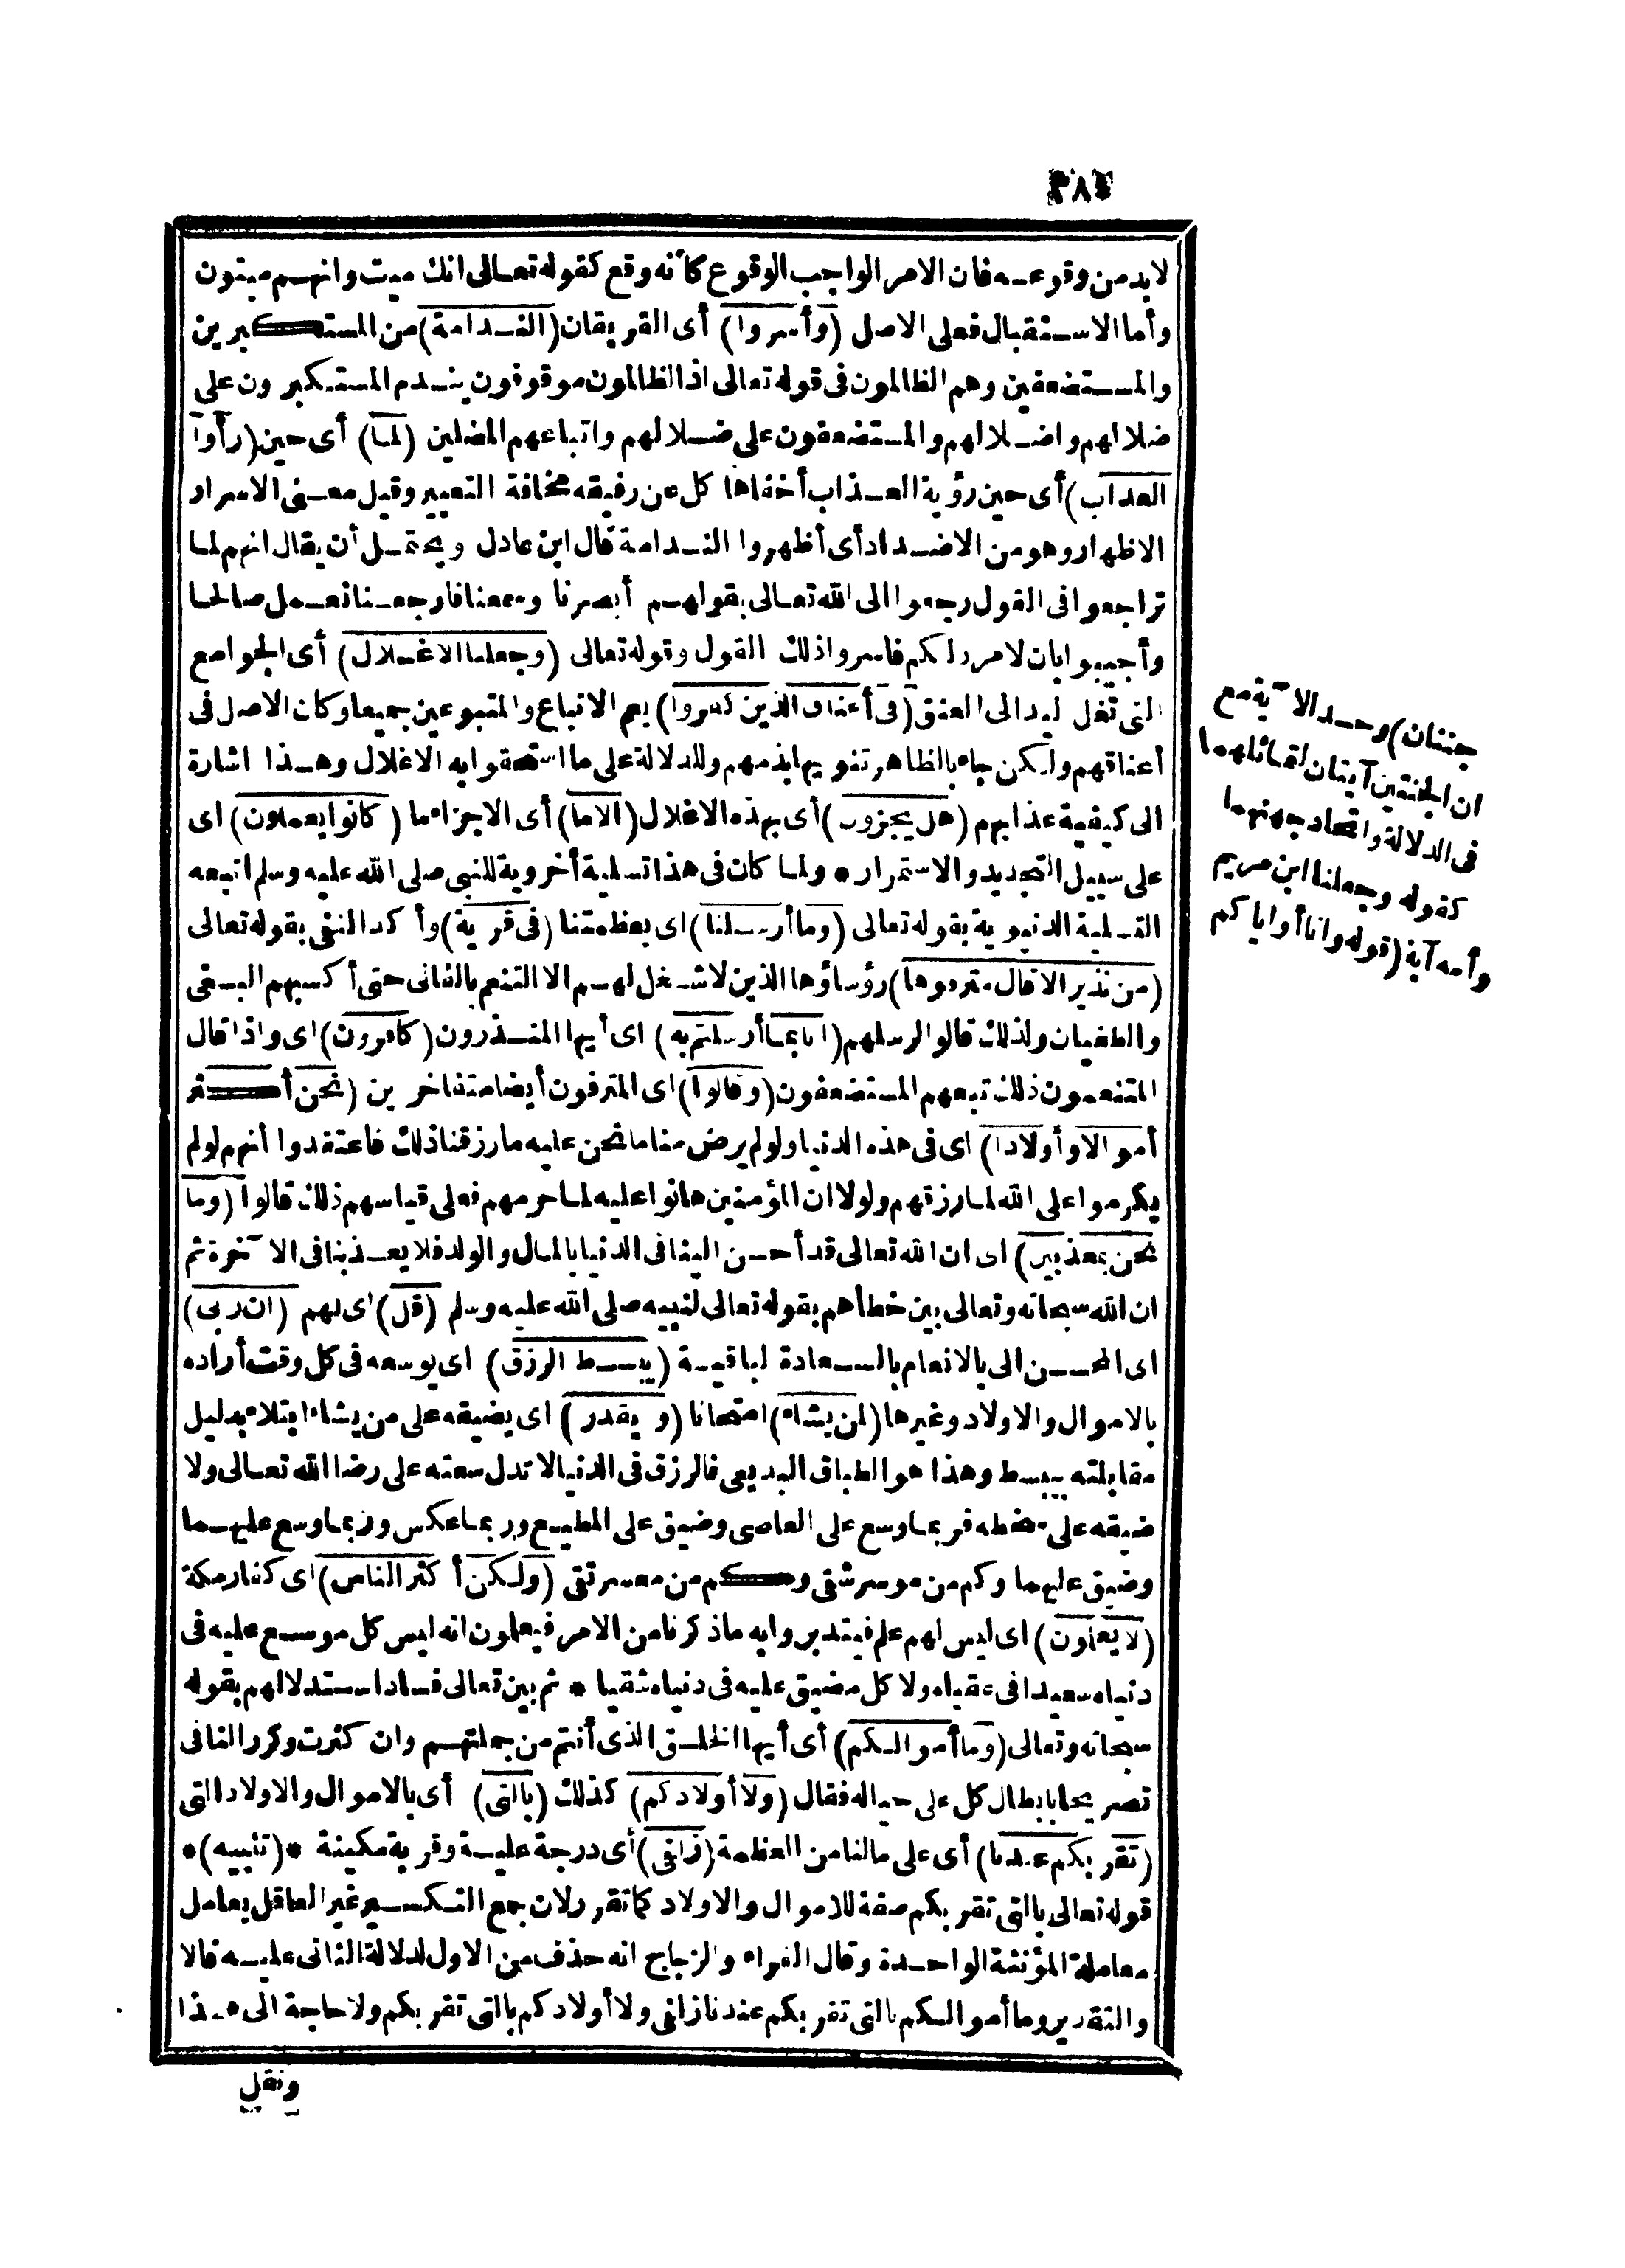 لابد من وقوعه فان الامر الواجب الوقوع كأنه وقع كقوله تعالى انك ميت وانهم ميتون
وأما الاستقبال فعلى الاصل (وأسروا) أى الفريقان (الندامة) من المستكبرين
والمستضعفين وهم الظالمون فى قوله تعالى اذ الظالمون موقوفون يندم المستكبرون على
ضلالهم واضلالهم والمستضعفون على ضلالهم واتباعهم المضلين (لما) أى حين (رأوا
العذاب) أى حين رؤية العذاب أخفاها كل عن رفيقه مخافة التعيير وقيل معنى الاسرار
الاظهار وهو من الاضداد أى أظهروا الندامة قال ابن عادل ويحتمل أن يقال انهم لما
تراجعوا فى القول رجعوا الى الله تعالى بقولهم أبصرنا وسمعنا فارجعنا نعمل صالحا
وأجيبوا بان لا مرد لكم فاسروا ذلك القول وقوله تعالى (وجعلنا الاغلال) أى الجوامع
التى تغل اليد الى العنق (فى أعناق الذين كفروا) يعم الاتباع والمتبوعين جميعا وكان الاصل فى
أعناقهم ولكن جاء بالظاهر تنويها بذمهم وللدلالة على ما استحقوا به الاغلال وهذا اشارة
الى كيفية عذابهم (هل يجزون) أى بهذه الاغلال (الا ما) أى الا جزاء ما (كانوا يعملون) اى
على سبيل التجديد والاستمرار * ولما كان فى هذا تسلية أخروية للنبى صلى الله عليه وسلم اتبعه
التسلية الدنيوية بقوله تعالى (وما أرسلنا) اى بعظمتنا (فى قرية) وأكد النفى بقوله تعالى
(من نذير الا قال مترفوها) رؤساؤها الذين لا شغل لهم الا التنعم بالفانى حتى أكسبهم البغى
والطغيان ولذلك قالوا لرسلهم (انا بما أرسلتم به) اى أيها المنذرون (كافرون) اى واذا قال
المتنعمون ذلك تبعهم المستضعفون (وقالوا) اى المترفون أيضا متفاخرين (نحن أكثر
أموالا وأولادا) اى فى هذه الدنيا ولو لم يرض منا ما نحن عليه ما رزقنا ذلك فاعتقدوا أنهم لو لم
يكرموا على الله لما رزقهم ولولا ان المؤمنين هانوا عليه لما حرمهم فعلى قياسهم ذلك قالوا (وما
نحن بمعذبين) اى ان الله تعالى قد أحسن الينا فى الدنيا بالمال والولد فلا يعذبنا فى الآخرة ثم
ان الله سبحانه وتعالى بين خطأهم بقوله تعالى لنبيه صلى الله عليه وسلم (قل) اى لهم (ان ربى)
اى المحسن الى بالانعام بالسعادة الباقية (يبسط الرزق) اى يوسعه فى كل وقت أراده
بالاموال والاولاد وغيرها (لمن يشاء) امتحانا (ويقدر) اى يضيقه على من يشاء ابتلاء بدليل
مقابلته بيبسط وهذا هو الطباق البديعى فالرزق فى الدنيا لا تدل سعته على رضا الله تعالى ولا
ضيقه على سخطه فربما وسع على العاصى وضيق على المطيع وربما عكس وربما وسع عليهما
وضيق عليهما وكم من موسر شقى وكم من معسر تقى (ولكن أكثر الناس) اى كفار مكة
(لا يعلمون) اى ليس لهم علم فيتدبروا به ما ذكرنا من الامر فيعلمون انه ليس كل موسع عليه فى
دنياه سعيدا فى عقباه ولا كل مضيق عليه فى دنياه شقيا * ثم بين تعالى فساد استدلالهم بقوله
سبحانه وتعالى (وما أموالكم) أى أيها الخلق الذى أنتم من جملتهم وان كثرت وكرر النافى
تصريحا بابطال كل على حياله فقال (ولا أولادكم) كذلك (بالتى) أى بالاموال والاولاد التى
(تقربكم عندنا) أى على مالنا من العظمة (زلفى) أى درجة علية وقربة مكينة * (تنبيه) *
قوله تعالى بالتى تقربكم صفة للاموال والاولاد كما تقرر لان جمع التكسير غير العاقل يعامل
معاملة المؤنثة الواحدة وقال الفراء والزجاج انه حذف من الاول لدلالة الثانى عليه قالا
والتقدير وما أموالكم بالتى تقربكم عندنا زلفى ولا أولادكم بالتى تقربكم ولا حاجة الى هذا
ونقل
جنتان) وحد الآية مع
ان الجنتين آيتان لتماثلهما
فى الدلالة واتحاد جهتهما
كقوله وجعلنا ابن مريم
وأمه آية (قوله وانا أو اياكم